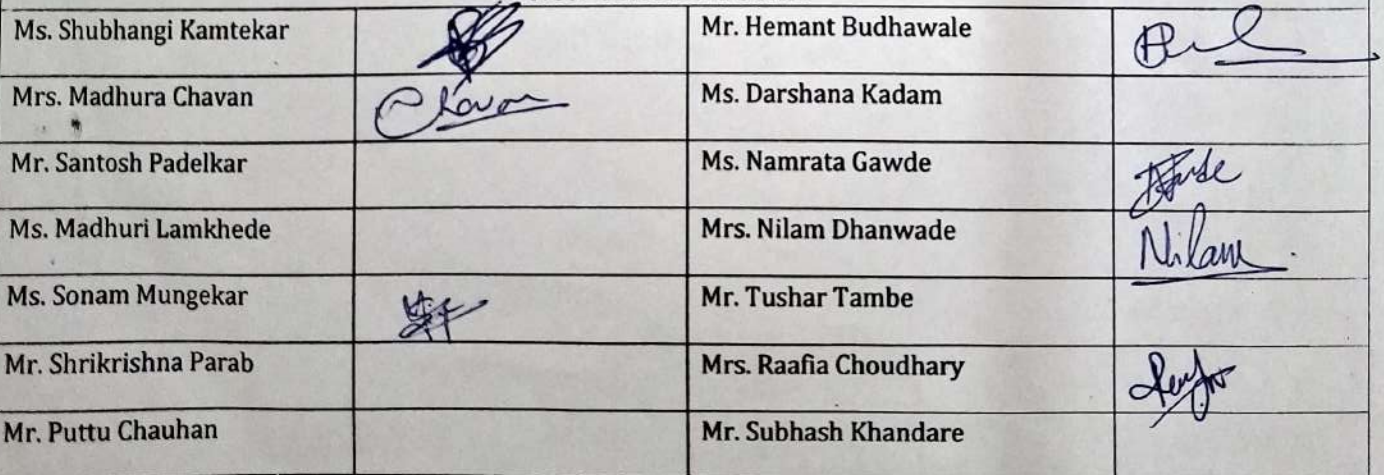 Ms. Shubhangi Kamtekar Mr. Hemant Budhawale
Mrs. Madhura Chavan Chavan Ms. Darshana Kadam
Mr. Santosh Padelkar Ms. Namrata Gawde
Ms. Madhuri Lamkhede Mrs. Nilam Dhanwade Nilam
Ms. Sonam Mungekar Mr. Tushar Tambe
Mr. Shrikrishna Parab Mrs. Raafia Choudhary
Mr. Puttu Chauhan Mr. Subhash Khandare